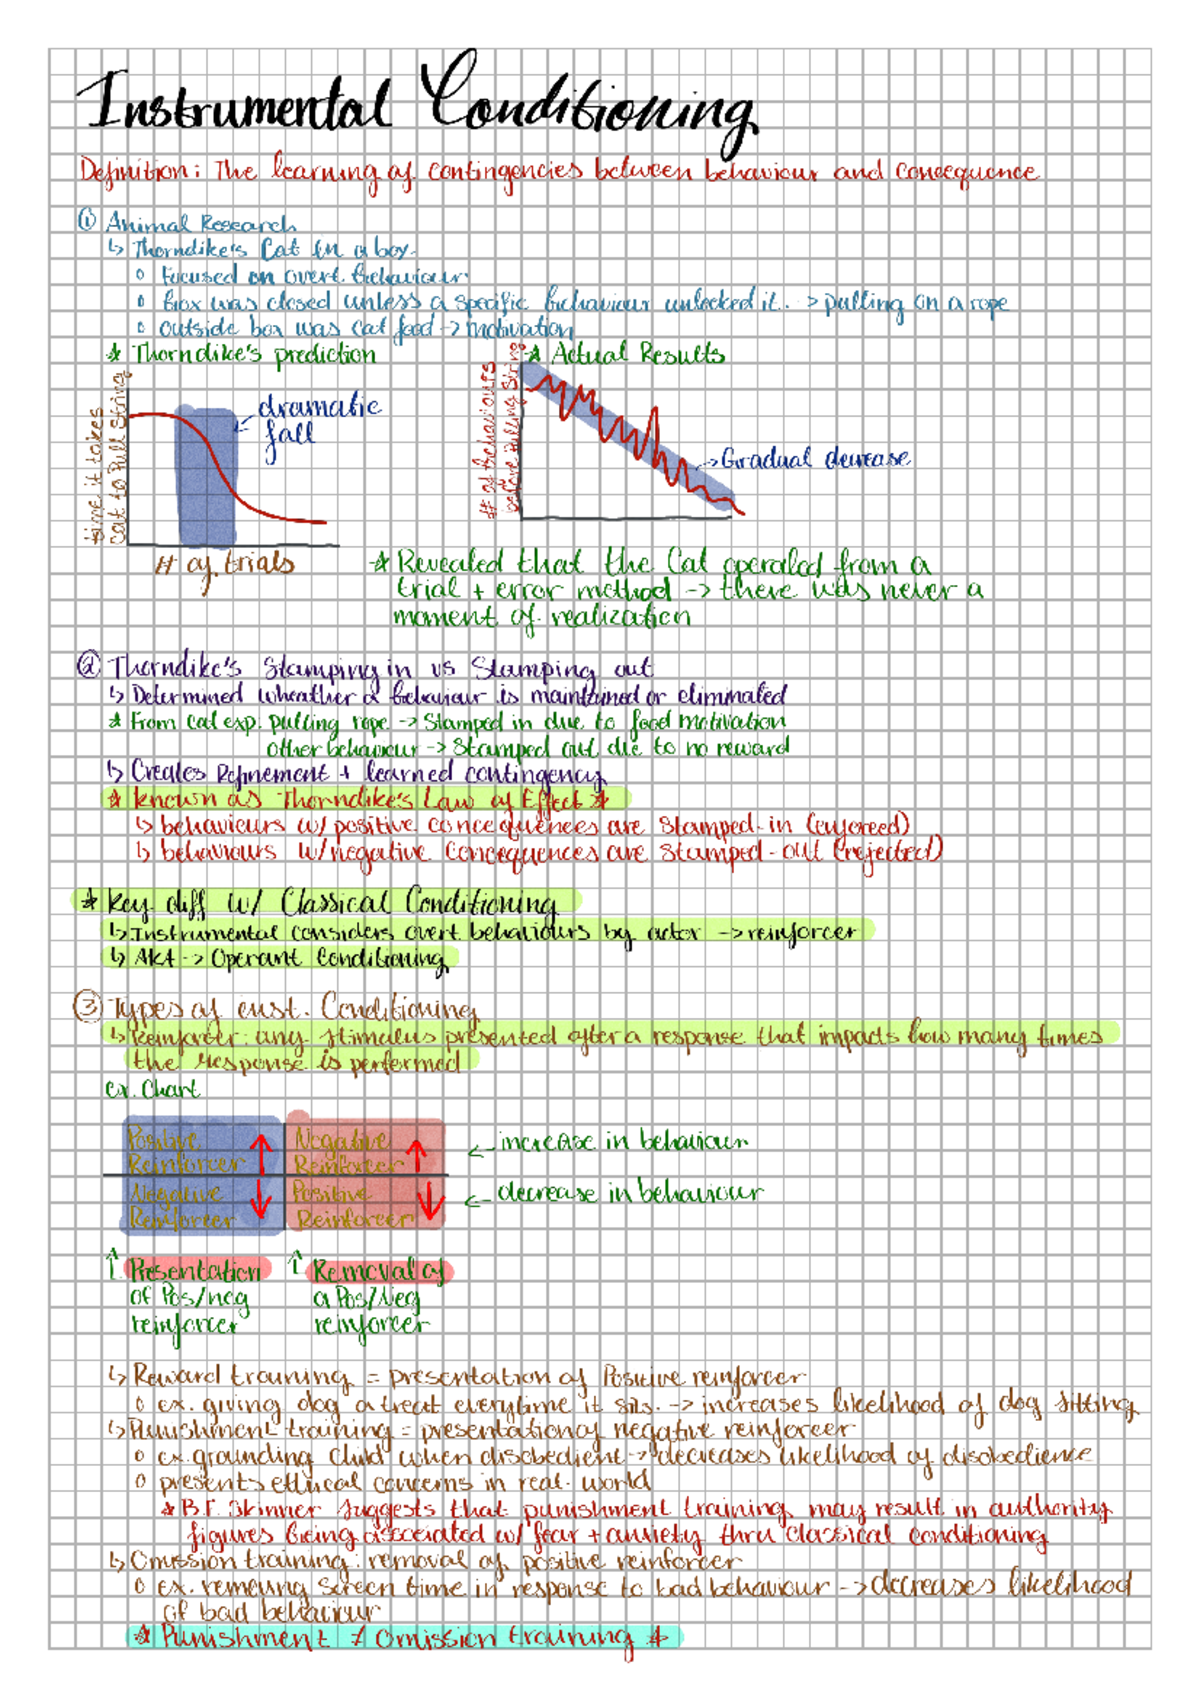 Instrumental Conditioning
Definition: The learning of contingencies between behaviour and concequence
① Animal Research
↳ Thorndike's Cat in a box
o focused on overt behaviour
o Box was closed unless a specific behaviour unlocked it. -> pulling on a rope
o outside box was cat food -> motivation
* Thorndike's prediction
* Actual Results
time it takes
cat to Pull String
dramatic
fall
# of trials
# of Behaviours
before Pulling String
-> Gradual decrease
* Revealed that the Cat operated from a
trial + error method -> there was never a
moment of realization
② Thorndike's Stamping in vs Stamping out
↳ Determined wheather a behaviour is maintained or eliminated
* From Cat exp. pulling rope -> Stamped in due to food motivation
other behaviour -> Stamped out due to no reward
↳ Creates Refinement + learned contingency
* known as Thorndike's Law of Effect *
↳ behaviours w/ positive concequences are Stamped-in (enforced)
↳ behaviours w/ negative concequences are Stamped-out (rejected)
* key diff w/ Classical Conditioning
↳ Instrumental considers overt behaviours by actor -> reinforcer
↳ AKA -> Operant Conditioning
③ Types of inst. Conditioning
↳ Reinforcer: any stimulus presented after a response that impacts how many times
the response is performed
ex. Chart
Positive
Reinforcer ↑
Negative
Reinforcer ↑
<- increase in behaviour
Negative
Reinforcer ↓
Positive
Reinforcer ↓
<- decrease in behaviour
↑ Presentation
of Pos/neg
reinforcer
↑ Removal of
a Pos/Neg
reinforcer
↳ Reward training = presentation of Positive reinforcer
o ex. giving dog a treat everytime it sits. -> increases likelihood of dog sitting
↳ Punishment training = presentation of negative reinforcer
o ex. grounding child when disobedient -> decreases likelihood of disobedience
o presents ethical concerns in real-world
* B.F. Skinner suggests that punishment training may result in authority
figures being associated w/ fear + anxiety thru classical conditioning
↳ Omission training: removal of positive reinforcer
o ex. removing screen time in response to bad behaviour -> decreases likelihood
of bad behaviour
* Punishment ≠ Omission training *